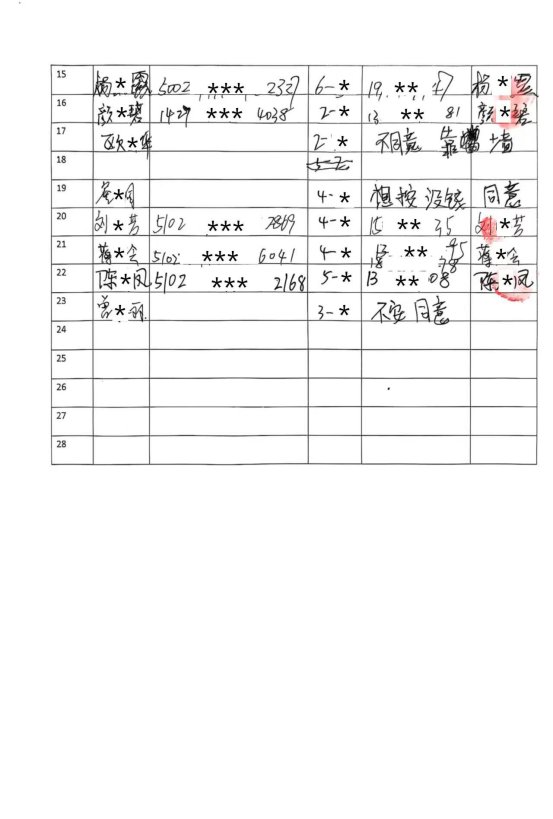 15 杨*霞 5002 *** 2327 6-* 19 ** 47 杨*霞
16 颜*碧 1427 *** 4038 2-* 13 ** 81 颜*碧
17 欧*华 2-* 不同意 靠墙
18
19 4-* 想按 没钱 同意
20 刘*芳 5102 *** 7869 4-* 15 ** 35 刘*芳
21 蒋*会 5102 *** 6041 4-* ** 蒋*会
22 陈*凤 5102 *** 2168 5-* 13 ** 08 陈*凤
23 曾*丽 3-* 不安 同意
24
25
26
27
28